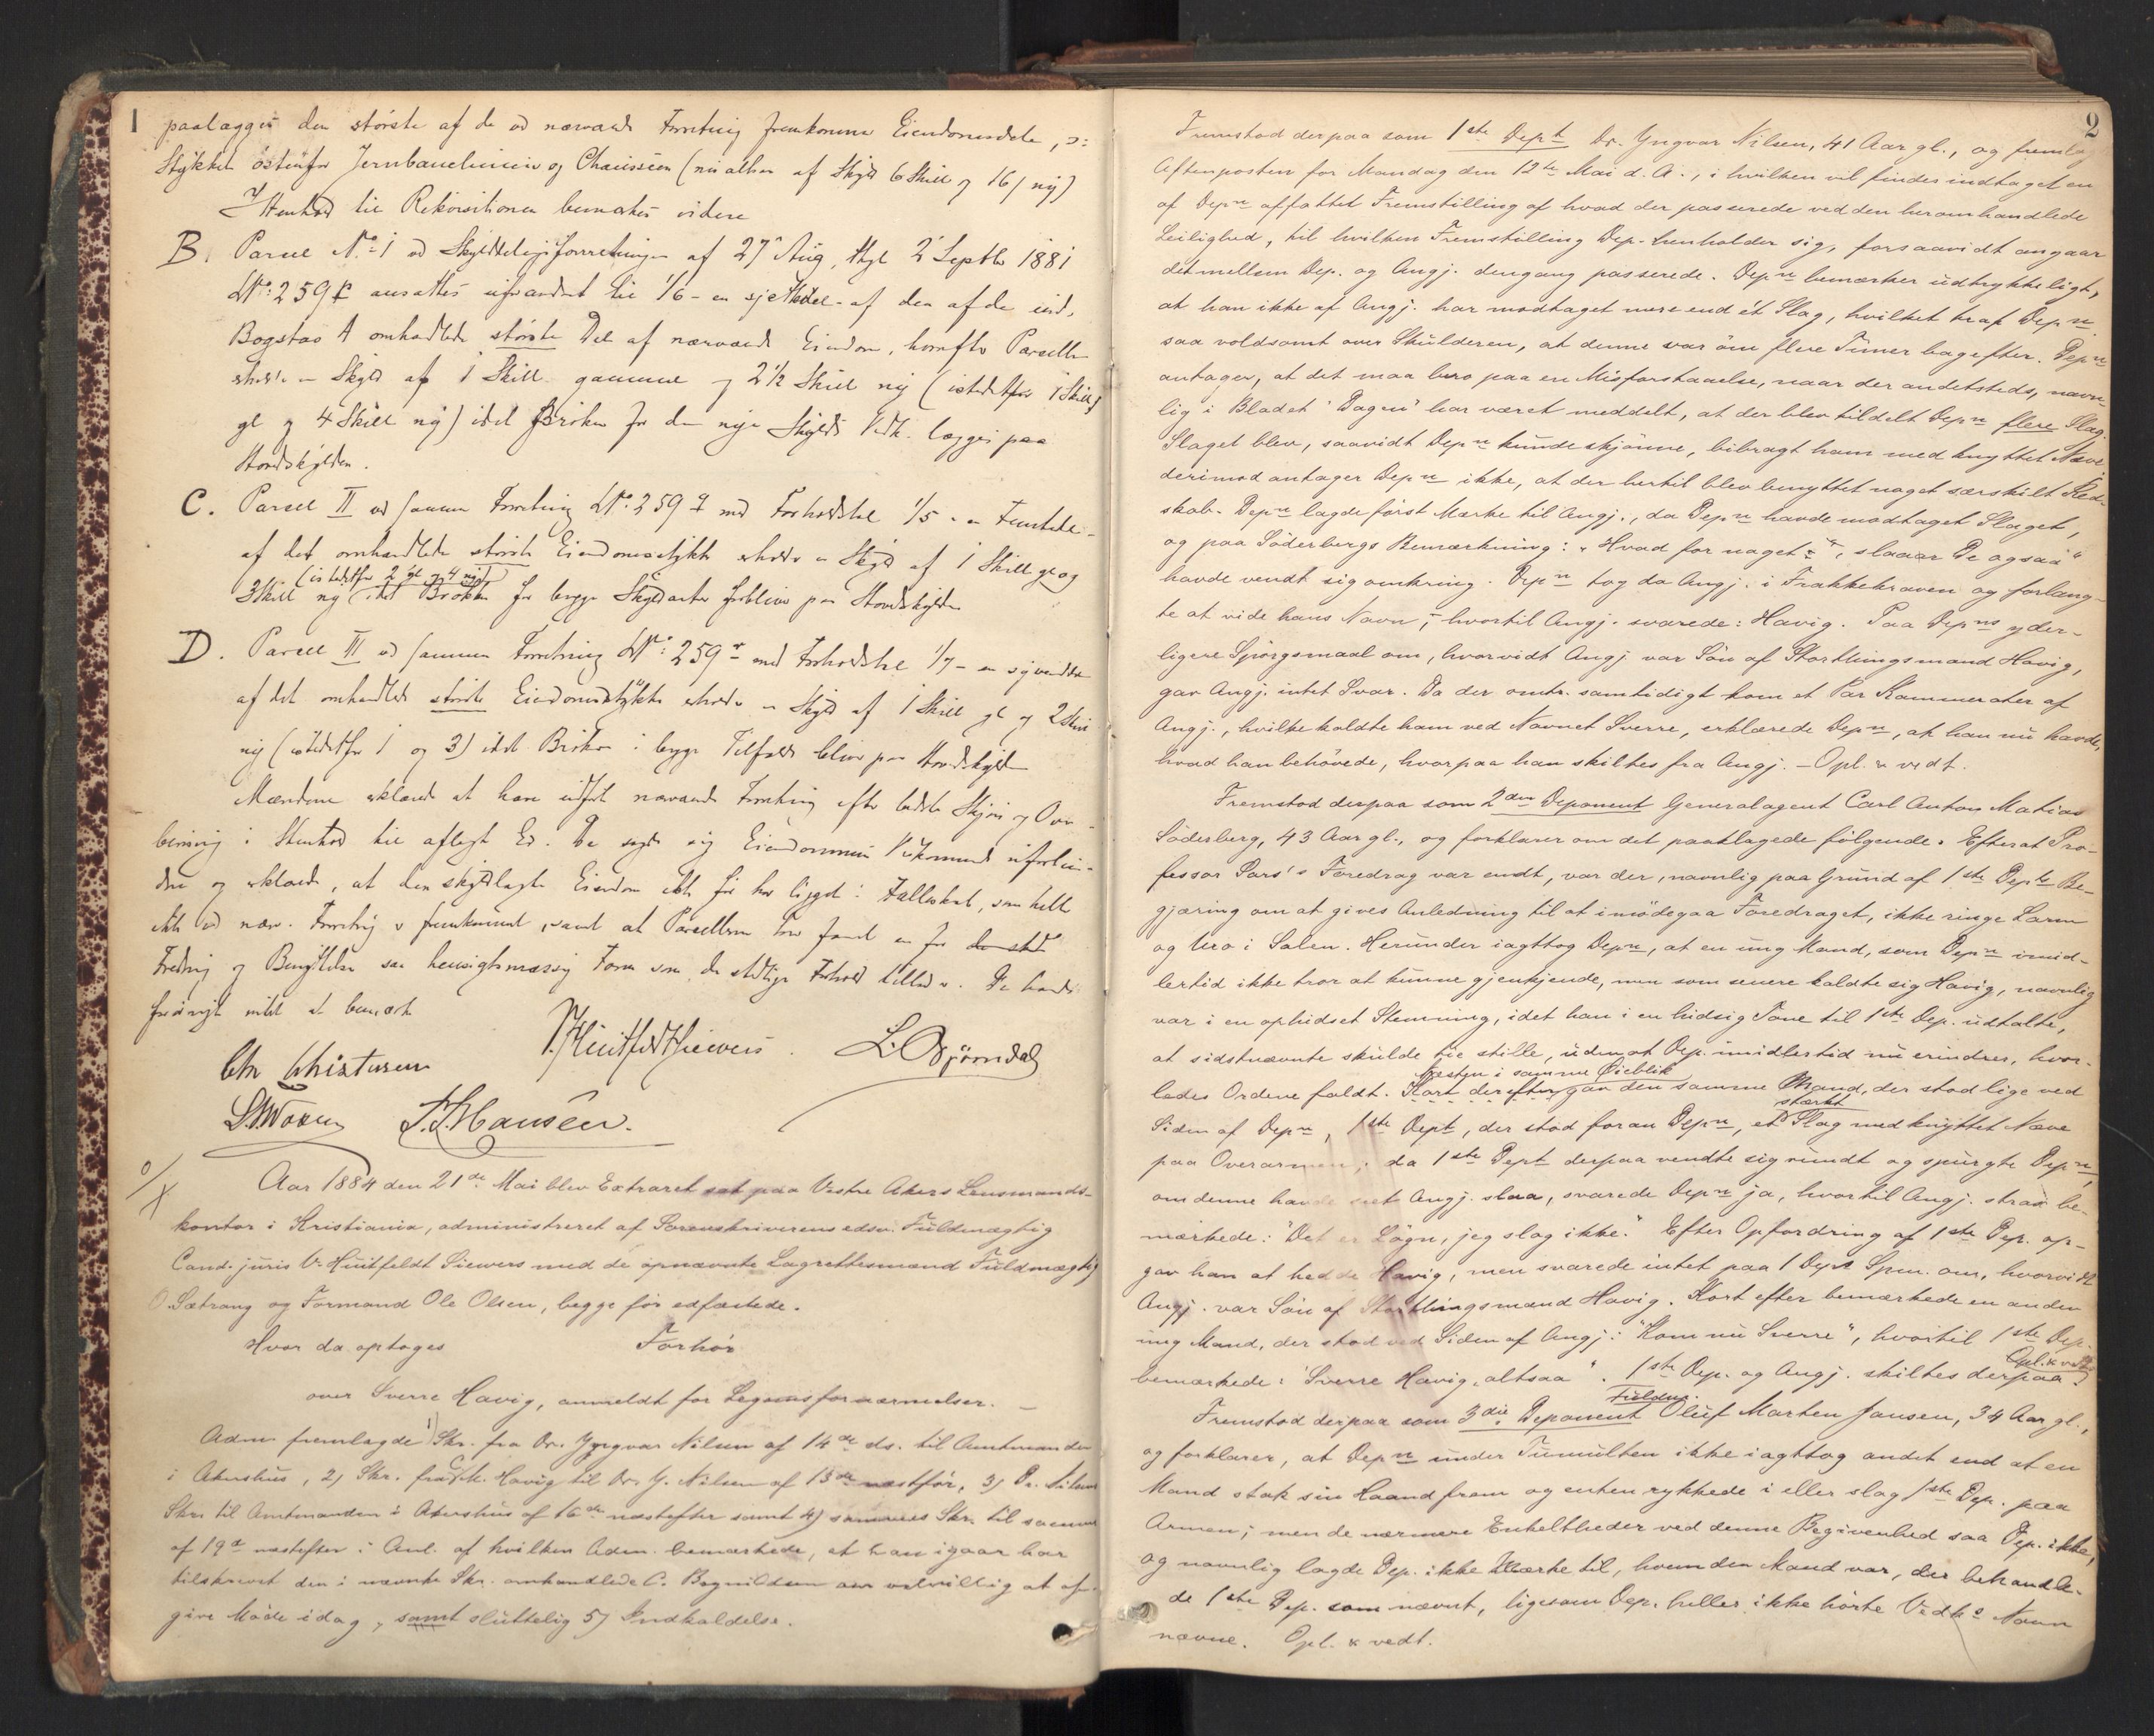 1
paalægges den største af de ved nærværende Forretning fremkomne Eiendomsdele, ɔ:
Stykket østenfor Jernbanelinien og Chausséen (nu altsaa af Skyld 6 Skill og 16 / ny)
I Henhold til Rekvisitionen bemærkes videre
B. Parcel No 1 ved Skylddelingsforretningen af 27 Aug, thgl 2 Septbr 1881
LNo: 259 p ansattes uforandret til 1/6 - en sjettedel - af den af de und.
Bogstav A omhandlede største Del af nærværende Eiendom, hvorefter Parcellen
erholder en Skyld af 1 Skill. gammel og 2 1/2 Skill ny (istedetfor 1 Skill
gl og 4 Skill ny) idet Brøken for den nye Skylds Vedk. lægges paa
Hovedskylden.
C. Parcel II ved samme Forretning LNo: 259 q med Forholdstal 1/5 - en Femtedel -
af det omhandlede største Eiendomsstykke erholder en Skyld af 1 Skill gl og
3 Skill ny (istedetfor 2 gl og 4 ny) idet Brøken for begge Skyldarter forbliver paa Hovedskylden
D. Parcel III ved samme Forretning LNo: 259 r med Forholdstal 1/7 - en syvendedel
af det omhandlede største Eiendomsstykke erholder en Skyld af 1 Skill gl og 2 Skill
ny (istedetfor 1 og 3) idet Brøken i begge Tilfælde bliver paa Hovedskylden
Mændene erklærede at have udført nærværende Forretning efter bedste Skjøn og Over-
bevisning i Henhold til aflagt Ed. De sagde sig Eiendommens Vedkommende uforbun-
dne og erklærede, at den skyldlagte Eiendom ikke før har ligget i Fælleskab, som heller
ikke ved nærv. Forretning er fremkommet, samt at Parcellerne have faaet en for
Fredning og Benyttelse saa hensigtsmæssig Form som de stedlige Forhold tillader. De havde
forøvrigt intet at bemærke
V. Huitfeldt Siewers. L. Bjørndal
Chr Christensen
J. J. Hansen.
Aar 1884 den 21de Mai blev Extraret sat paa Vestre Akers Lensmands-
kontor i Kristiania, administreret af Sorenskriverens edsv. Fuldmægtig
Cand. juris V. Huitfeldt Siewers med de opnævnte Lagrettesmænd Fuldmægtig
O. Sætrang og Formand Ole Olsen, begge før edfæstede.
Hvor da optoges Forhør
over Sverre Havig, anmeldt for Legemsfornærmelser. -
Adm. fremlagde 1) Skr. fra Dr. Yngvar Nilsen af 14de ds. til Amtmanden
i Akershus, 2) Skr. fra Havig til Dr. Y. Nilsen af 13de næstfør, 3) Dr. Nilsens
Skr. til Amtmanden i Akershus af 16de næstefter samt 4) sammes Skr. til samme
af 19de næstefter i Anl. af hvilken Adm. bemærkede, at han igaar har
tilskrevet den i nævnte Skr. omhandlede C. Bognildsen om velvillig at af-
give Møde idag, samt sluttelig 5) Indkaldelse.
2
Fremstod derpaa som 1ste Dept Dr. Yngvar Nilsen, 41 Aar gl., og fremlagde
Aftenposten for Mandag den 12te Mai d. A., i hvilken vil findes indtaget en
af Depn affattet Fremstilling af hvad der passerede ved den heromhandlede
Leilighed, til hvilken Fremstilling Dep. henholder sig, forsaavidt angaar
det mellem Dep. og Angj. dengang passerede. Depn bemærker udtrykkeligt,
at han ikke af Angj. har modtaget mere end ét Slag, hvilket traf Depn.
saa voldsomt over Skulderen, at denne var øm flere Timer bagefter. Depn
antager, at det maa bero paa en Misforstaaelse, naar der andetsteds, navn-
lig i Bladet "Dagen" har været meddelt, at der blev tildelt Depn flere Slag.
Slaget blev, saavidt Depn kunde skjønne, bibragt ham med knyttet Næve,
derimod antager Depn ikke, at der hertil blev benyttet noget særskilt Red-
skab. Depn lagde først Mærke til Angj., da Depn havde modtaget Slaget,
og paa Söderbergs Bemærkning: "Hvad for noget, slaaar De ogsaa"
havde vendt sig omkring. Depn tog da Angj. i Frakkekraven og forlang-
te at vide hans Navn, hvortil Angj. svarede: Havig. Paa Depns yder-
ligere Spørgsmaal om, hvorvidt Angj. var Søn af Storthingsmand Havig,
gav Angj. intet Svar. Da der omtr. samtidigt kom et Par Kammerater af
Angj., hvilke kaldte ham ved Navnet Sverre, erklærede Depn, at han nu havde,
hvad han behövede, hvorpaa han skiltes fra Angj. - Opl. & vedt.
Fremstod derpaa som 2den Deponent Generalagent Carl Anton Mathias
Söderberg, 43 Aar gl., og forklarer om det paaklagede følgende. Efterat Pro-
fessor Sars's Foredrag var endt, var der, navnlig paa Grund af 1ste Depts Be-
gjæring om at gives Anledning til at imødegaa Foredraget, ikke ringe Larm
og Uro i Salen. Herunder iagttog Depn, at en ung Mand, som Depn imid-
lertid ikke tror at kunne gjenkjende, men som senere kaldte sig Havig, navnlig
var i en ophidset Stemning, idet han i en hidsig Tone til 1ste Dep. udtalte,
at sidstnævnte skulde tie stille, uden at Dep. imidlertid nu erindrer, hvor-
ledes Ordene faldt. Kort derefter næsten i samme Øieblik gav den samme Mand, der stod lige ved
Siden af Depn, 1ste Dept, der stod foran Depn, et stærkt Slag med knyttet Næve
paa Overarmen; da 1ste Dept derpaa vendte sig rundt og spurgte Depn,
om denne havde seet Angj. slaa, svarede Depn ja, hvortil Angj. strax be-
mærkede: "Det er Løgn, jeg slog ikke." Efter Opfordring af 1ste Dep. op-
gav han at hedde Havig, men svarede intet paa 1 Deps Spm. om, hvorvidt
Angj. var Søn af Storthingsmand Havig. Kort efter bemærkede en anden
ung Mand, der stod ved Siden af Angj.: "Kom nu Sverre", hvortil 1ste Dep.
bemærkede: "Sverre Havig, altsaa". 1ste Dep. og Angj. skiltes derpaa. Opl. & vedt.
Fremstod derpaa som 3die Deponent Fuldm. Oluf Marten Jansen, 34 Aar gl.,
og forklarer, at Depn under Tumulten ikke iagttog andet end at en
Mand stak sin Haand frem og enten rykkede i eller slog 1ste Dep. paa
Armen; men de nærmere Enkeltheder ved denne Begivenhed saa Dep. ikke,
og navnlig lagde Dep. ikke Mærke til, hvem den Mand var, der behandle-
de 1ste Dep. som nævnt, ligesom Dep. heller ikke hørte Vedks Navn
nævne. Opl. & vedt.